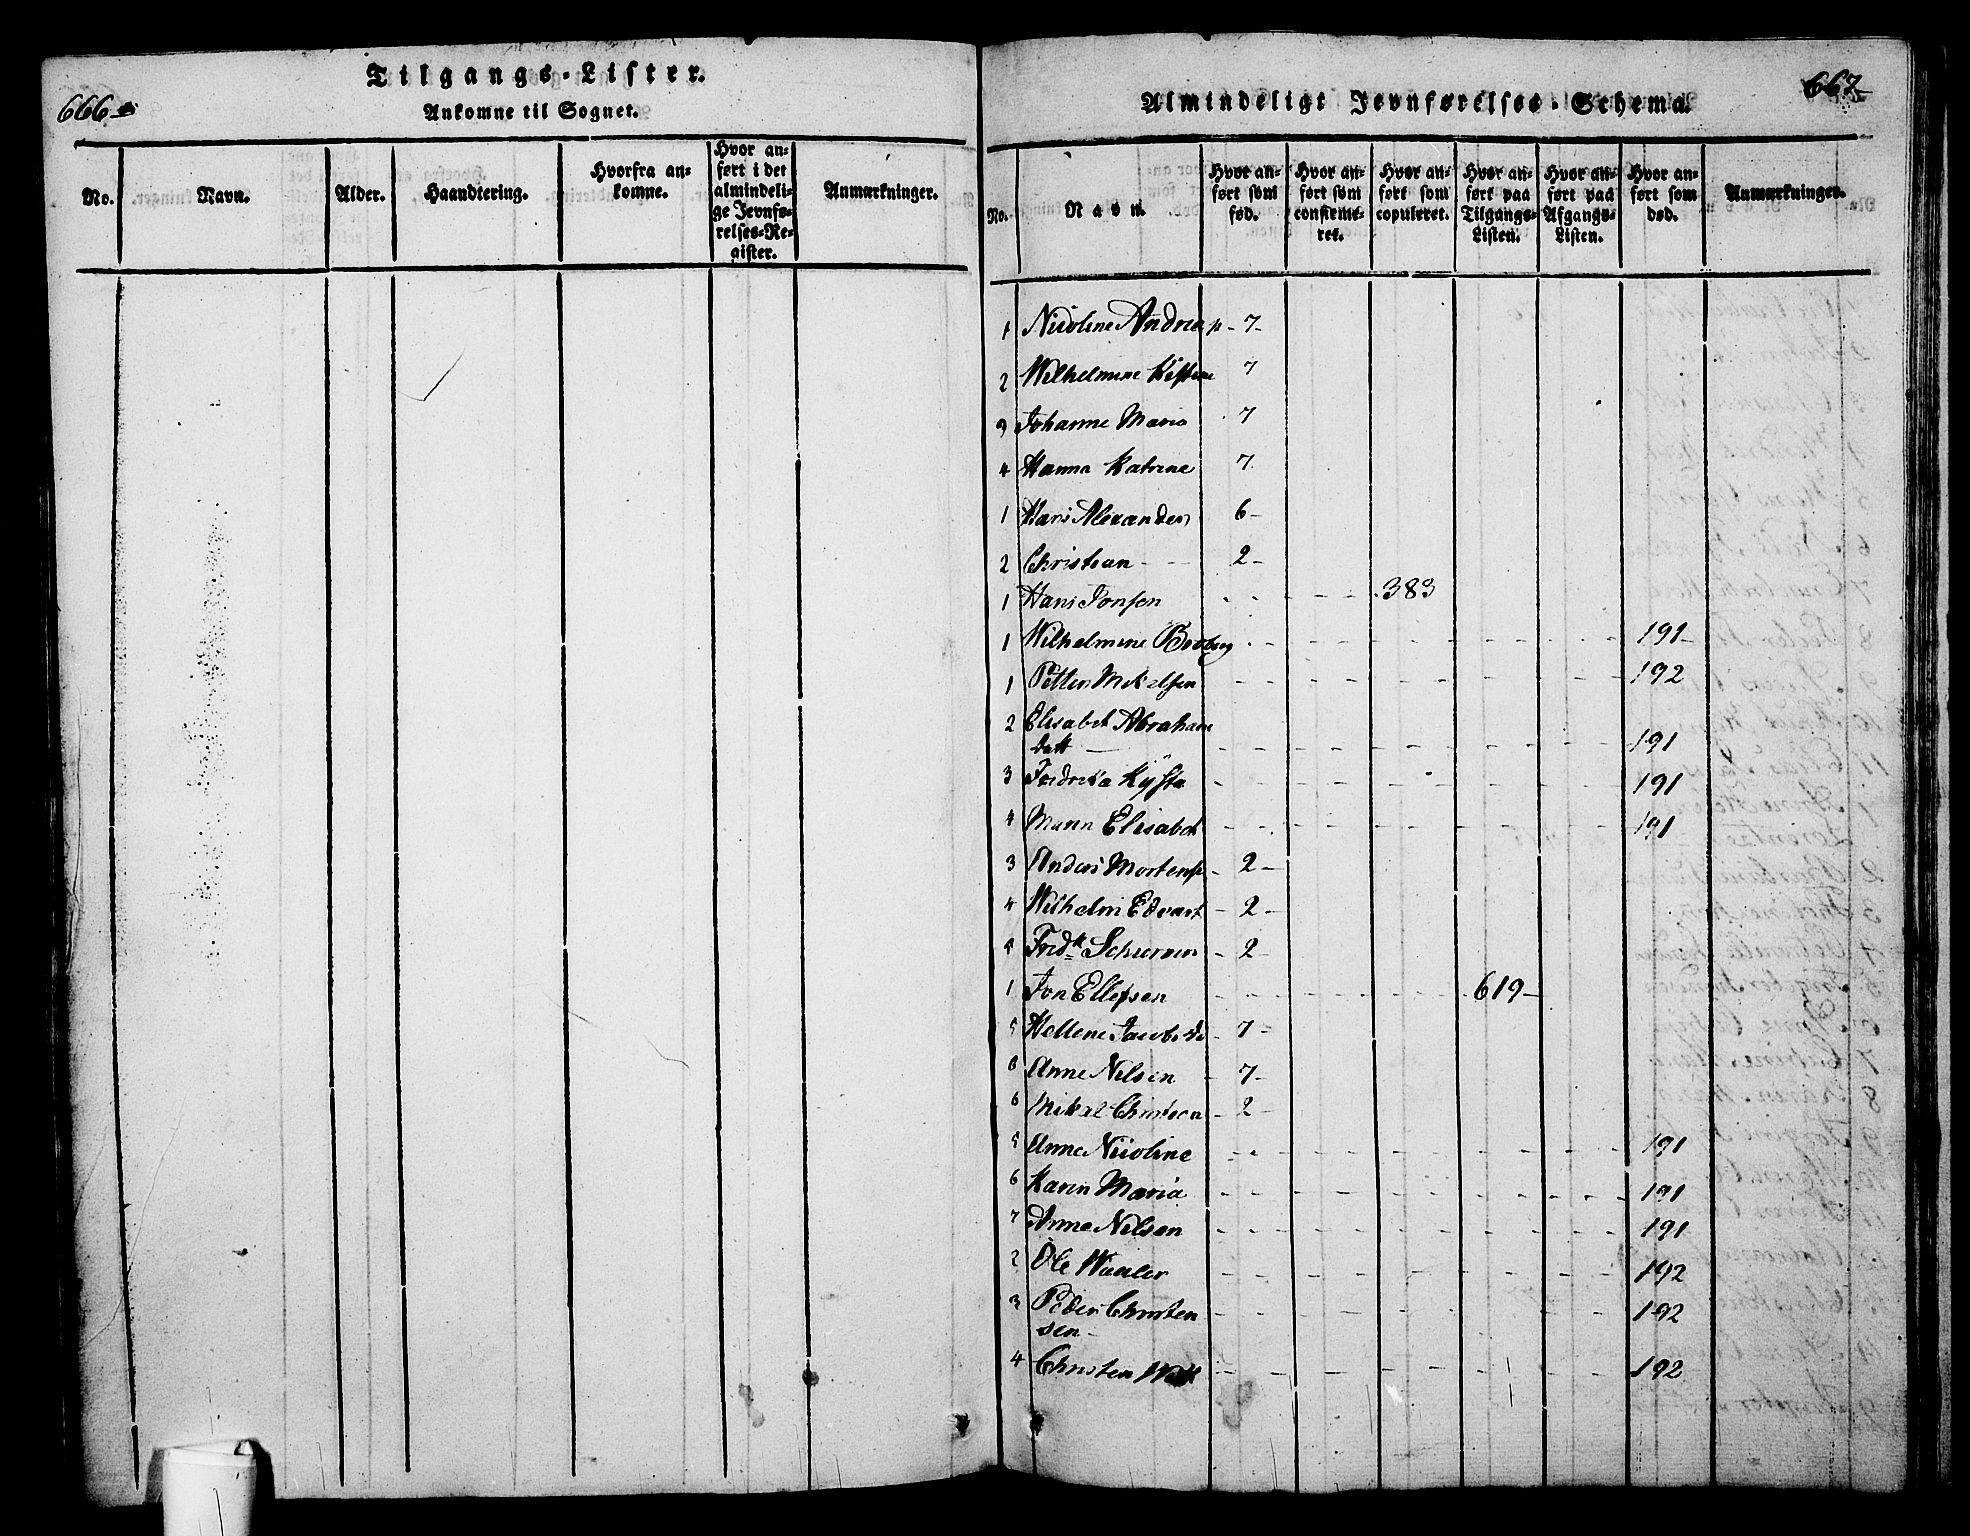 666
Tilgangs-Lister.
Ankomne til Sognet.
No. Navn. Alder. Haandtering. Hvorfra an-
komne. Hvor an-
ført i det
almindeli-
ge Jevnfø-
relses-Re-
gister. Anmærkninger.
667
Almindeligt Jevnførelses-Schema.
No. Navn. Hvor an-
ført som
fød. Hvor an-
ført som
confirme-
ret. Hvor an-
ført som
copuleret. Hvor an-
ført paa
Tilgangs-
Listen. Hvor an-
ført paa
Afgangs-
Listen. Hvor an-
ført som
død. Anmærkninger.
1 Nicoline Andrea - 7 -
2 Wilhelmine 7
3 Johanne Maria 7
4 Hanna Katrine 7
1 Hans Alexander 6 -
2 Christian - - 2 -
1 Hans Jonsen - - - - 383
1 Wilhelmine - - 191 -
1 Petter Mikelsen - - 192
2 Elisabet Abraham
datt - - 191
3 Fredrika - - 191
4 Maren Elisabet - - 191
3 Anders Mortens - 2 -
4 Wilhelm Edvart - 2 -
5 Fridk - 2 -
1 Jon Ellefsen - - 619 -
5 Hellene Jacobsd - 7 -
6 Anne Nelsen - 7 -
6 Mikal Christian - 2 -
5 Anne Nicoline - - 191
6 Karen Maria - - 191
7 Anne Nelsen - - 191
2 Ole - - 192
3 Peder Christen
sen - - 192
4 Christen - - 192